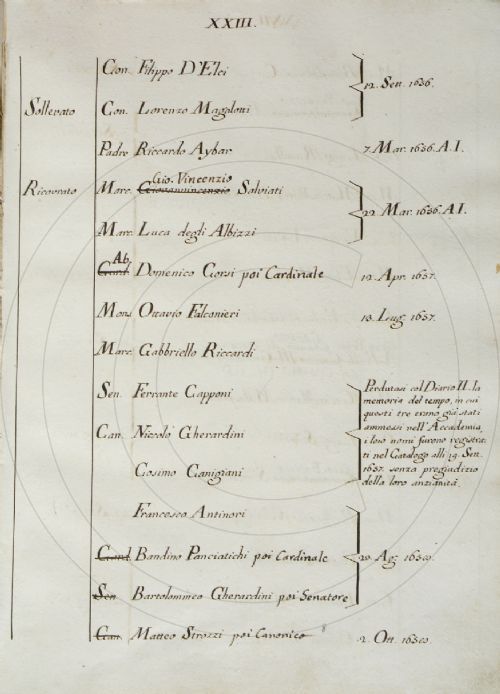 XXIII.
Con. Filippo D'Elci
12. Sett. 1656.
Sollevato Con. Lorenzo Magalotti
Padre Riccardo Aybar 7. Mar. 1656. A.I.
Gio. Vincenzio
Ricovrato Marc. Giovanvincenzio Salviati
22. Mar. 1656. A.I.
Marc. Luca degli Albizzi
Ab.
Card. Domenico Corsi poi Cardinale 12. Apr. 1657.
Mons. Ottavio Falconieri Lug. 1657.
Marc. Gabbriello Riccardi
Sen. Ferrante Capponi
Can. Niccolò Gherardini
Cosimo Canigiani
Perdutasi col Diario II. la
memoria del tempo, in cui
questi tre erano già stati
ammessi nell'Accademia,
i loro nomi furono registra-
ti nel Catalogo alli 19. Sett.
1657. senza pregiudizio
della loro anzianità.
Francesco Antinori
Card. Bandino Panciatichi poi Cardinale Ag.
Sen. Bartolommeo Gherardini poi Senatore
Can. Matteo Strozzi poi Canonico 2. Ott.